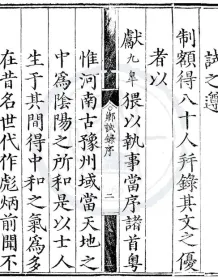 試之遵
制額得八十人并錄其文之優
者以
獻九臯猥以執事當序諸首粤
鄉試錄序 二
惟河南古豫州域當天地之
中為陰陽之所和是以士人
生于其間得中和之氣為多
在昔名世代作彪炳前聞不